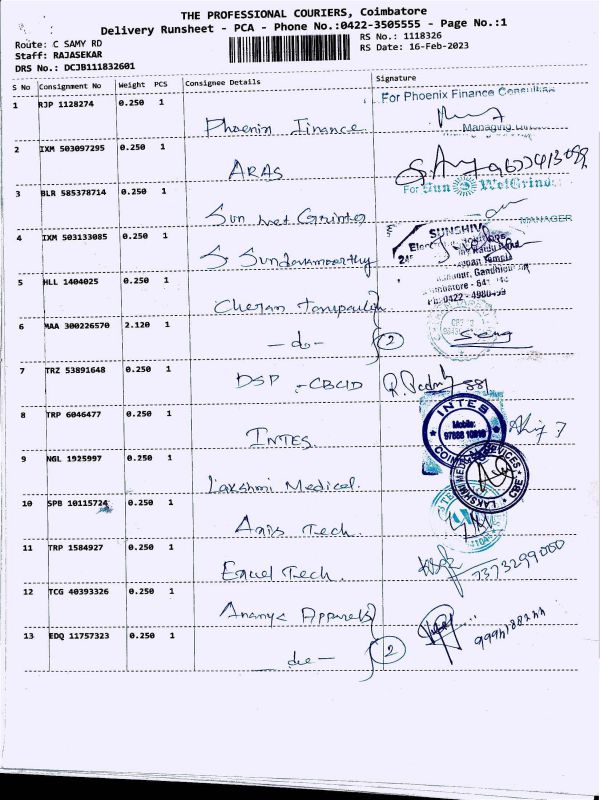 THE PROFESSIONAL COURIERS, Coimbatore
Delivery Runsheet - PCA - Phone No.:0422-3505555 - Page No.:1
Route: C SAMY RD
RS No.: 1118326
Staff: RAJASEKAR
RS Date: 16-Feb-2023
DRS No.: DCJB111832601
S No Consignment No Weight PCS Consignee Details Signature
1 RJP 1128274 0.250 1 Phoenix Finance For Phoenix Finance
Managing
2 IXM 503097295 0.250 1 ARAS
3 BLR 585378714 0.250 1 Sun Wet Grinter For Sun WetGrind
MANAGER
4 IXM 503133085 0.250 1 S. Sundaramoorthy SUNSHIV
5 HLL 1404025 0.250 1 Cheran
Ph: 0422 - 4980
6 MAA 300226570 2.120 1 - do - 2
7 TRZ 53891648 0.250 1 DSP - CBCID 881
8 TRP 6046477 0.250 1 INTES INTES
Mobile:
9 NGL 1925997 0.250 1 Lakshmi Medical. LAKSHMI MEDICAL DEVICES CBE
10 SPB 10115724 0.250 1 Tech
11 TRP 1584927 0.250 1 Tech. 7373299000
12 TCG 40393326 0.250 1 Ananya Apparels
13 EDQ 11757323 0.250 1 - do - 2